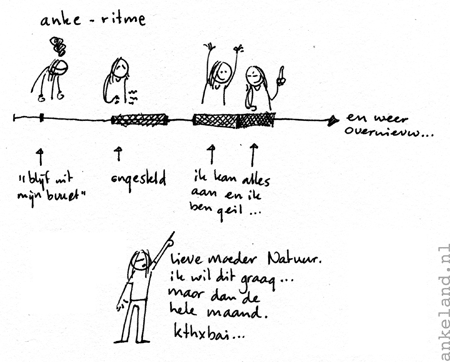 anke - ritme
en weer
overnieuw...
"blijf uit
mijn buurt"
ongesteld
ik kan alles
aan en ik
ben geil...
Lieve moeder Natuur.
ik wil dit graag...
maar dan de
hele maand.
kthxbai...
ankeland.nl